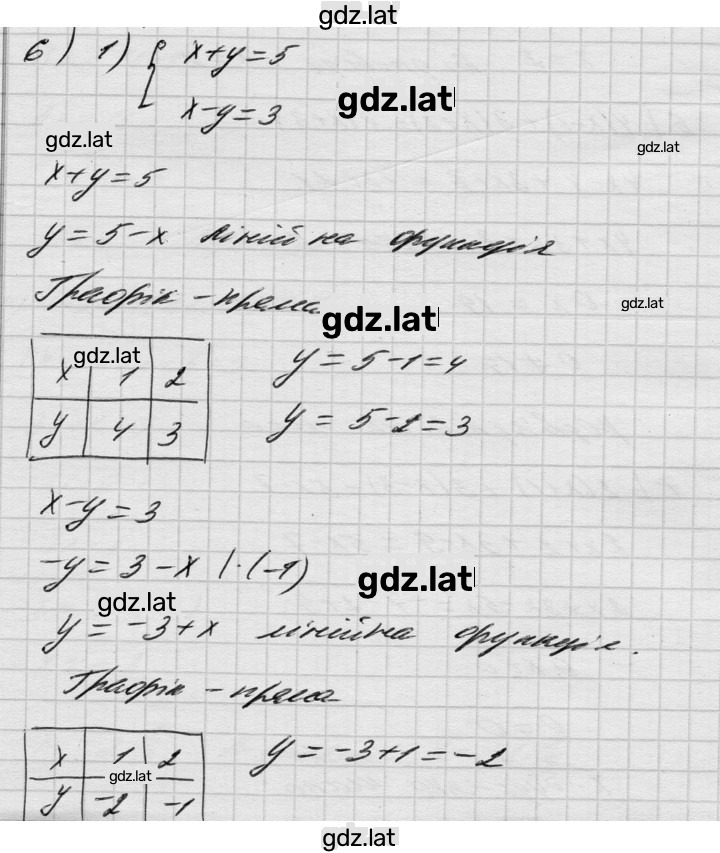 gdz.lat
6) 1) { x+y=5
x-y=3
gdz.lat
gdz.lat
gdz.lat
x+y=5
y=5-x лінійна функція
Графік - пряма
gdz.lat
gdz.lat
gdz.lat
x 1 2
y 4 3
y = 5-1=4
y = 5-2=3
x-y=3
-y=3-x |·(-1)
gdz.lat
gdz.lat
y=-3+x лінійна функція.
Графік - пряма
x 1 2
gdz.lat
y -2 -1
y = -3+1=-2
gdz.lat